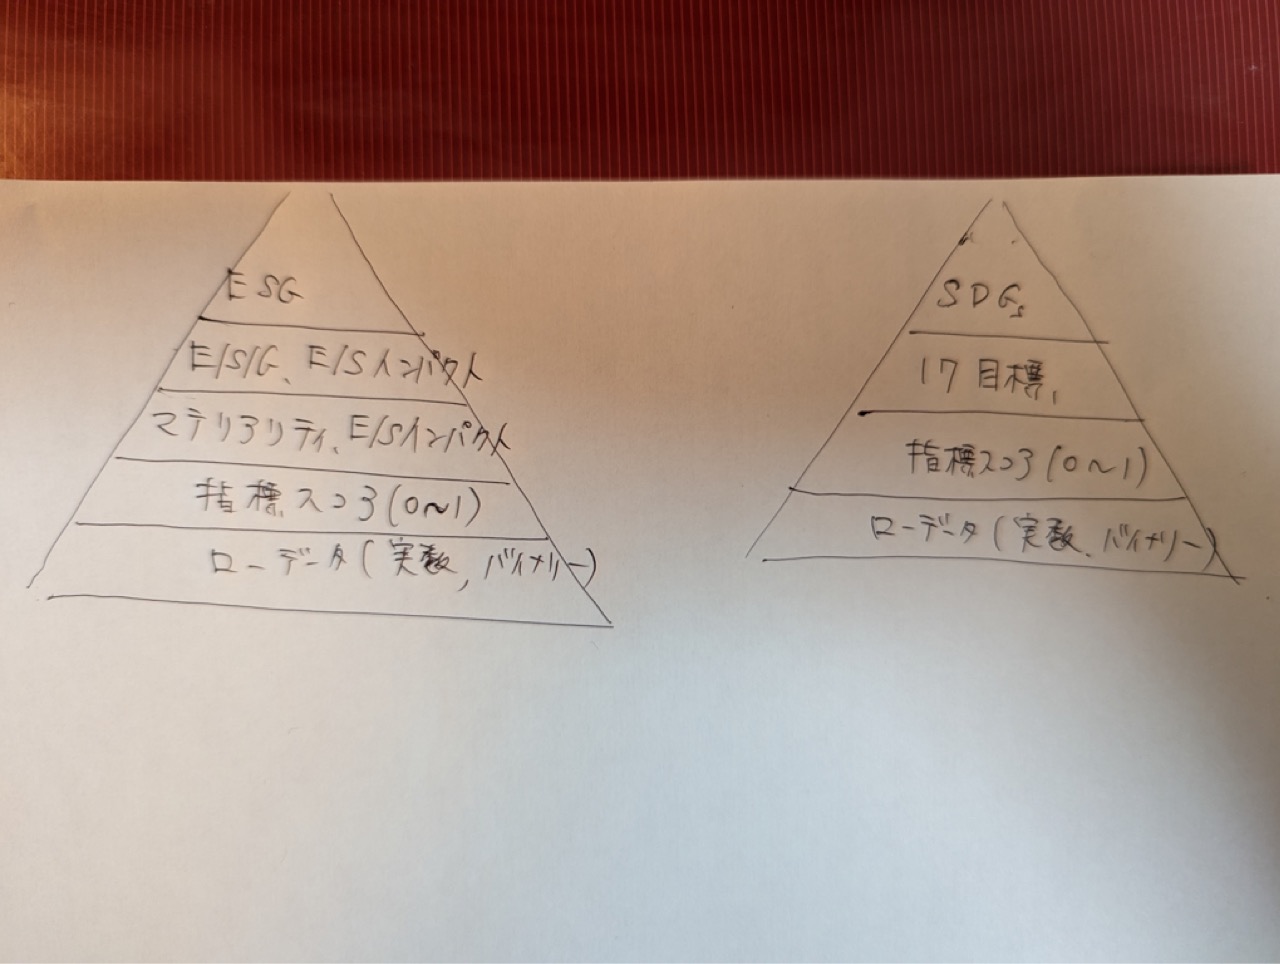 ESG
E/S/G、E/Sインパクト
マテリアリティ、E/Sインパクト
指標スコア(0~1)
ローデータ(実数, バイナリー)
SDGs
17目標,
指標スコア(0~1)
ローデータ(実数、バイナリー)